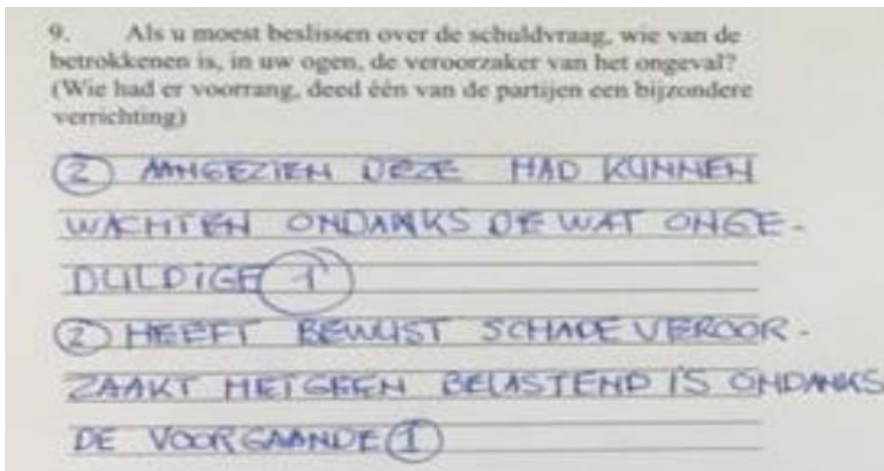 9. Als u moest beslissen over de schuldvraag, wie van de
betrokkenen is, in uw ogen, de veroorzaker van het ongeval?
(Wie had er voorrang, deed één van de partijen een bijzondere
verrichting)
② AANGEZIEN DEZE HAD KUNNEN
WACHTEN ONDANKS DE WAT ONGE-
DULDIGE ①
② HEEFT BEWUST SCHADE VEROOR-
ZAAKT HETGEEN BELASTEND IS ONDANKS
DE VOORGAANDE ①